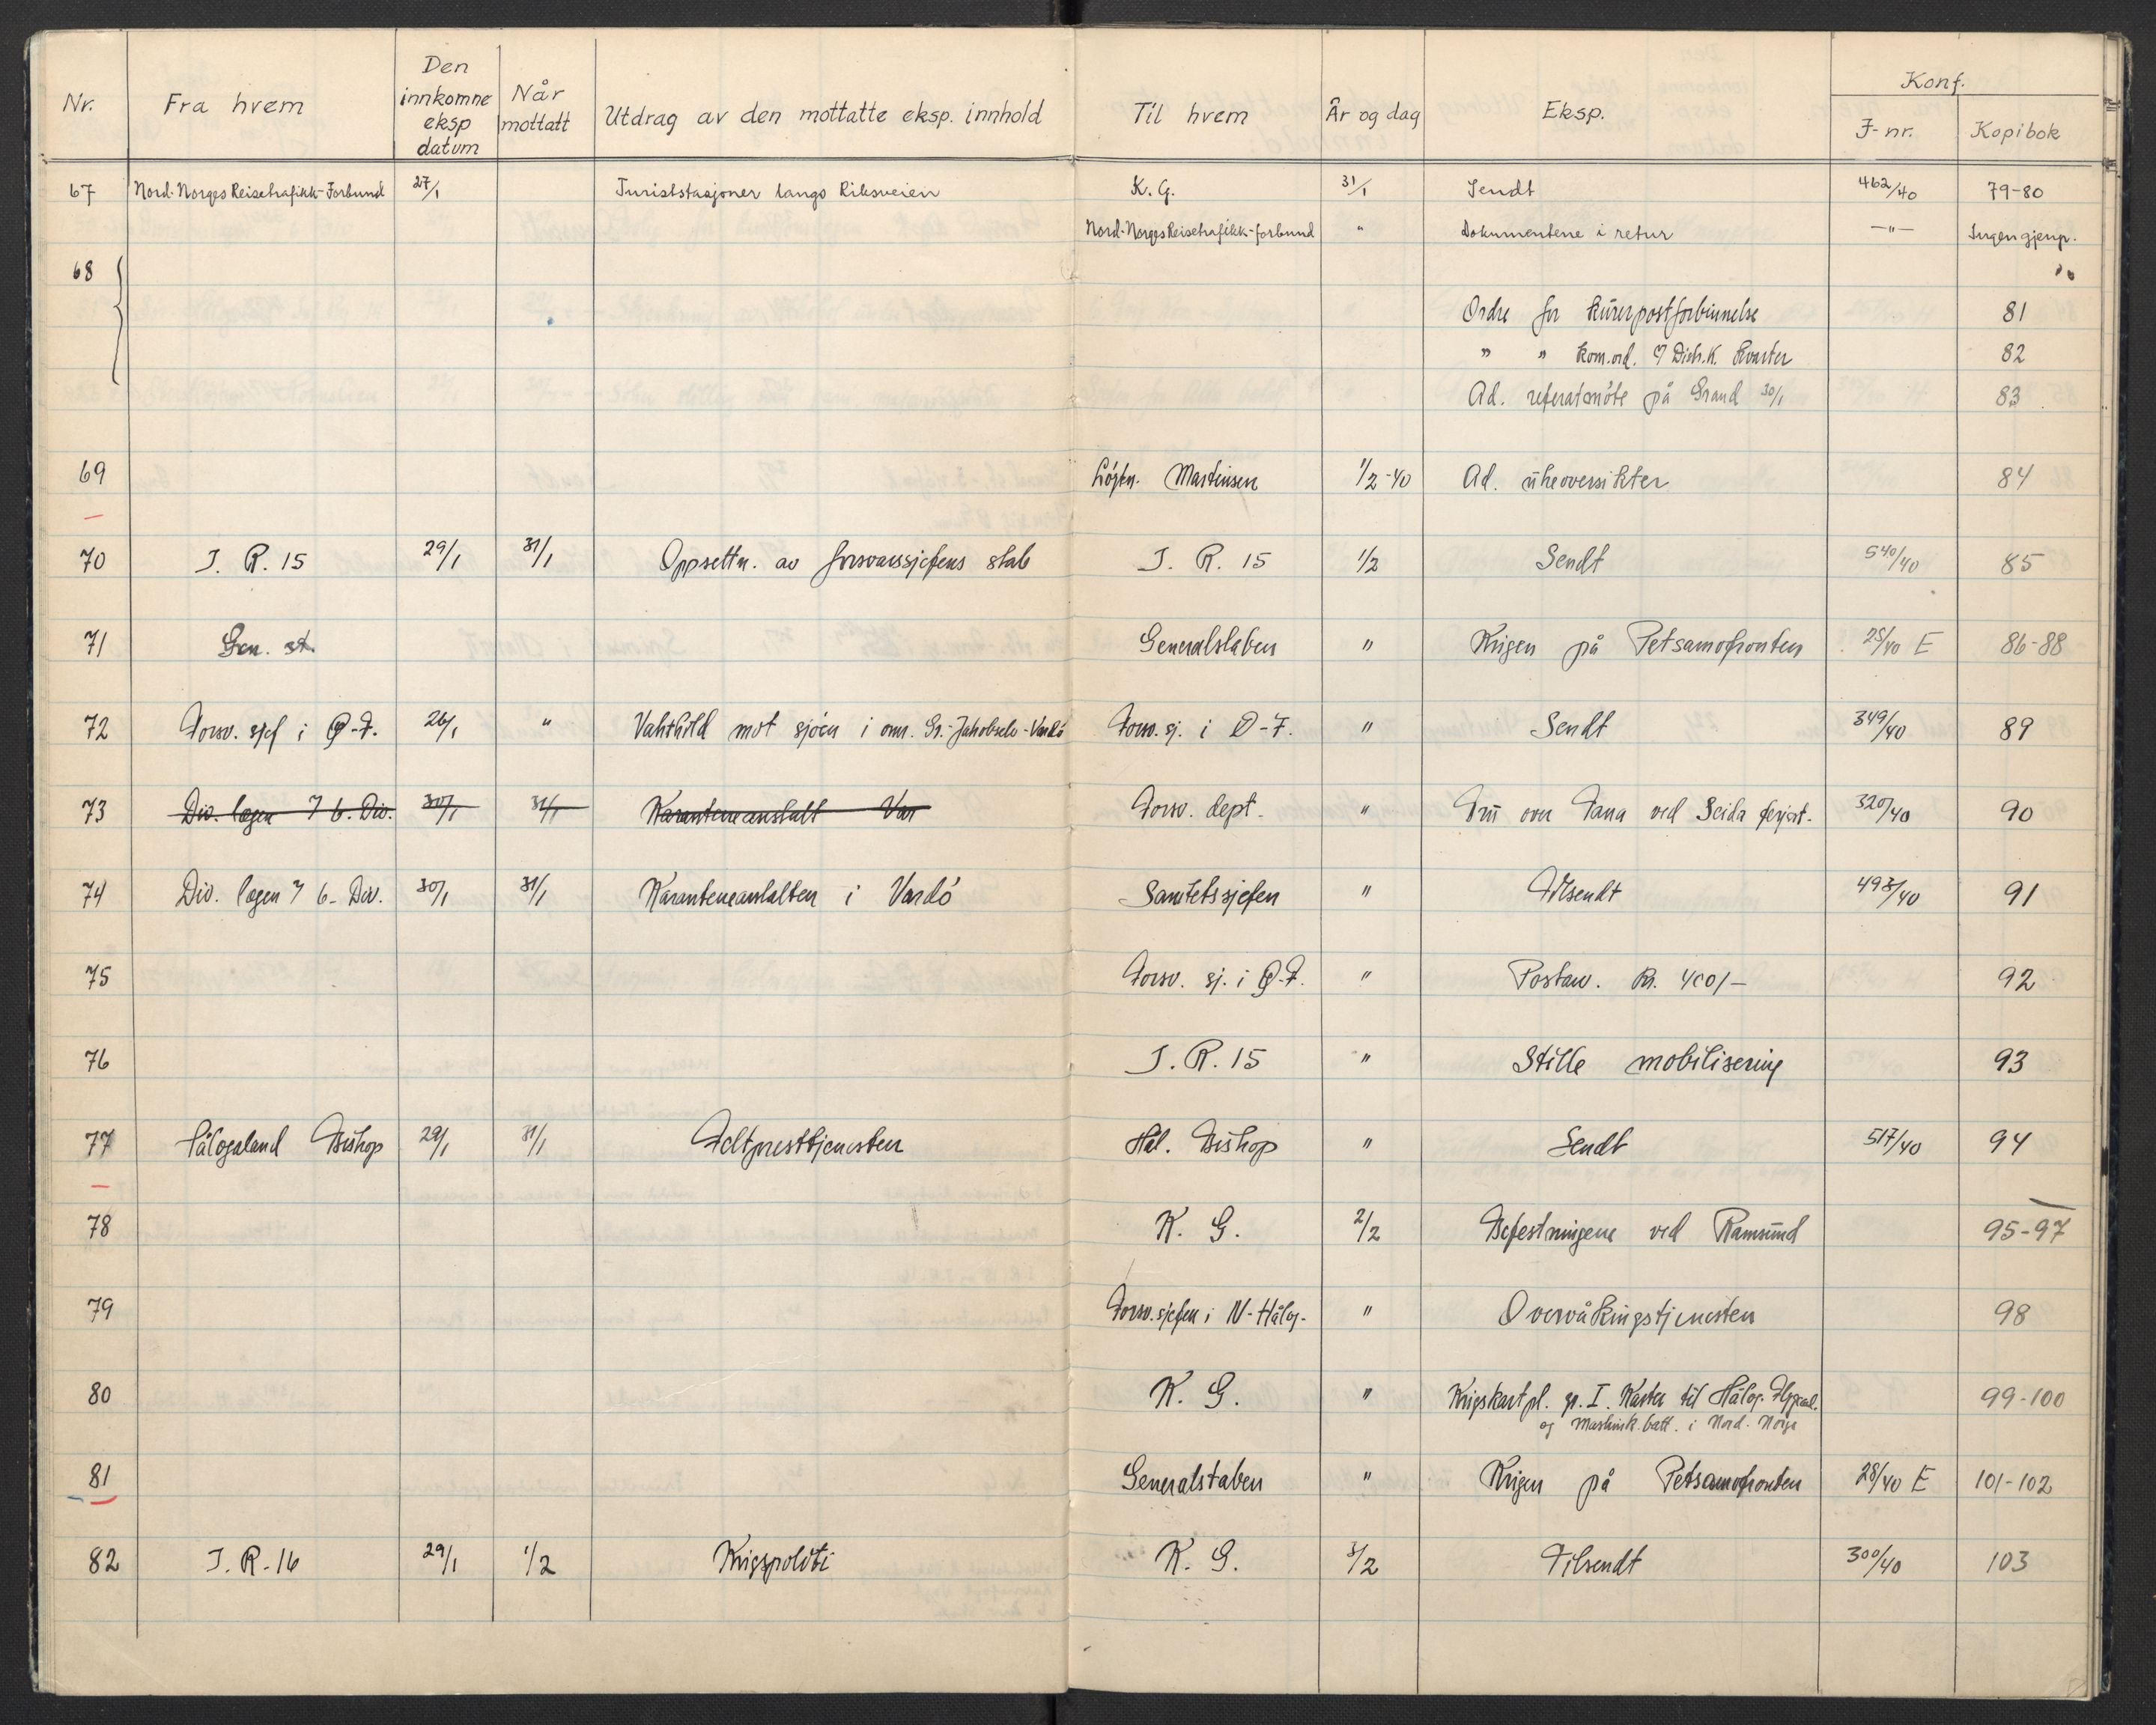 Nr. Fra hvem Den innkomne eksp datum Når mottatt Utdrag av den mottatte eksp. innhold Til hvem År og dag Eksp. Konf. J-nr. Kopibok
67 Nord-Norges Reisetrafikk-Forbund 27/1 Turiststasjoner langs Riksveien K. G. 31/1 Sendt 462/40 79-80
Nord-Norges Reisetrafikk-forbund " Dokumentene i retur —"— Ingen gjenp.
68
Ordre for kurerpostforbinnelse 81
" " kom.ord. Distr.k. 82
Ad. referatmöte på Grand 30/1 83
69 Löjtn. Martinsen 1/2-40 Ad. ukeoversikter 84
70 I. R. 15 29/1 31/1 Oppsettn. av forsvarssjefens stab I. R. 15 1/2 Sendt 540/40 85
71 Gen. st. Generalstaben " Krigen på Petsamofronten 25/40 E 86-88
72 Forsv. sjef i Ø-F. 26/1 " Vakthold mot sjöen i omr. Gr.-Jakobselv-Vardö Forsv. sj. i Ø-F. " Sendt 349/40 89
73 Div. lægen 7 6. Div. 30/1 31/1 Karanteneanstalt Var Forsv. dept. " over Tana ved Seida 320/40 90
74 Div. lægen 7 6. Div. 30/1 31/1 Karanteneanstalten i Vardö Sanitetssjefen " Tilsendt 493/40 91
75 Forsv. sj. i Ø-F. " Postanv. Kr. 400/- 92
76 I. R. 15 " Stille mobilisering 93
77 Hålogaland Biskop 29/1 31/1 Feltpresttjenesten Hål. Biskop " Sendt 517/40 94
78 K. G. 2/2 Befestningene ved Ramsund 95-97
79 Forsv. sjefen i N-Hålog. " Overvåkingstjenesten 98
80 K. G. " Krigskartpl. gr. I. Karter til Hålog.
og batt. i Nord-Norge 99-100
81 Generalstaben " Krigen på Petsamofronten 28/40 E 101-102
82 I. R. 16 29/1 1/2 Krigspoliti K. G. 3/2 Tilsendt 300/40 103